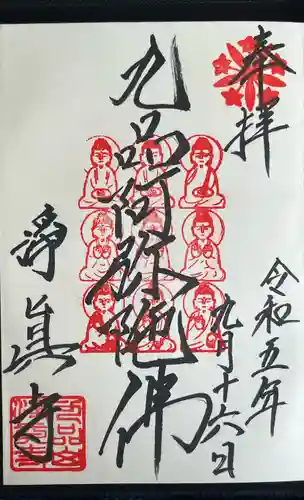 奉拝
令和五年
九月十六日
九品阿弥陀佛
淨眞寺